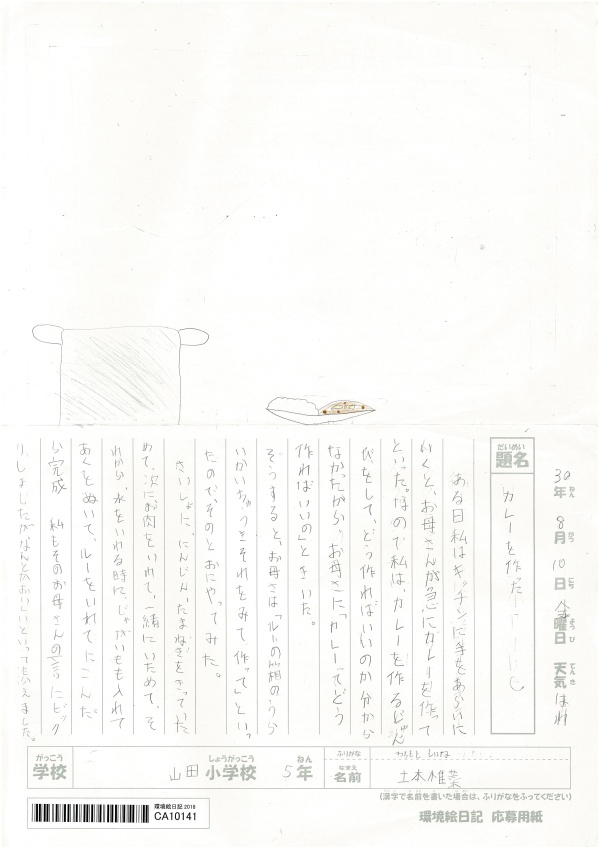 30年 8月 10日 金曜日 天気 はれ
ねん がつ にち ようび てんき
だいめい
題名
カレーを作った
ある日私はキッチンに手をあらいに
いくと、お母さんが急にカレーを作って
といった。なので私は、カレーを作るじゅん
びをして、どう作ればいいのか分から
なかったから、お母さに「カレーってどう
作ればいいの」ときいた。
そうすると、お母さは「ルーの箱のうら
にかいてあるそれをみて作って」といっ
たので、そのとおにやってみた。
さいしょに、にんじん、たまねぎをきっていた
めて、次にお肉をいれて、一緒にいためて、そ
れから、水をいれる時に、じゃがいもも入れて
あくをぬいて、ルーをいれてにこんだ。
完成 私もそのお母さんの言にビック
リしましたがなんとかおいしいといってもらえました。
がっこう
学校
山田
しょうがっこう
小学校
5年
ねん
ふりがな
なまえ
名前
(漢字で名前を書いた場合は、ふりがなをふってください)
環境絵日記 2018
CA10141
環境絵日記 応募用紙